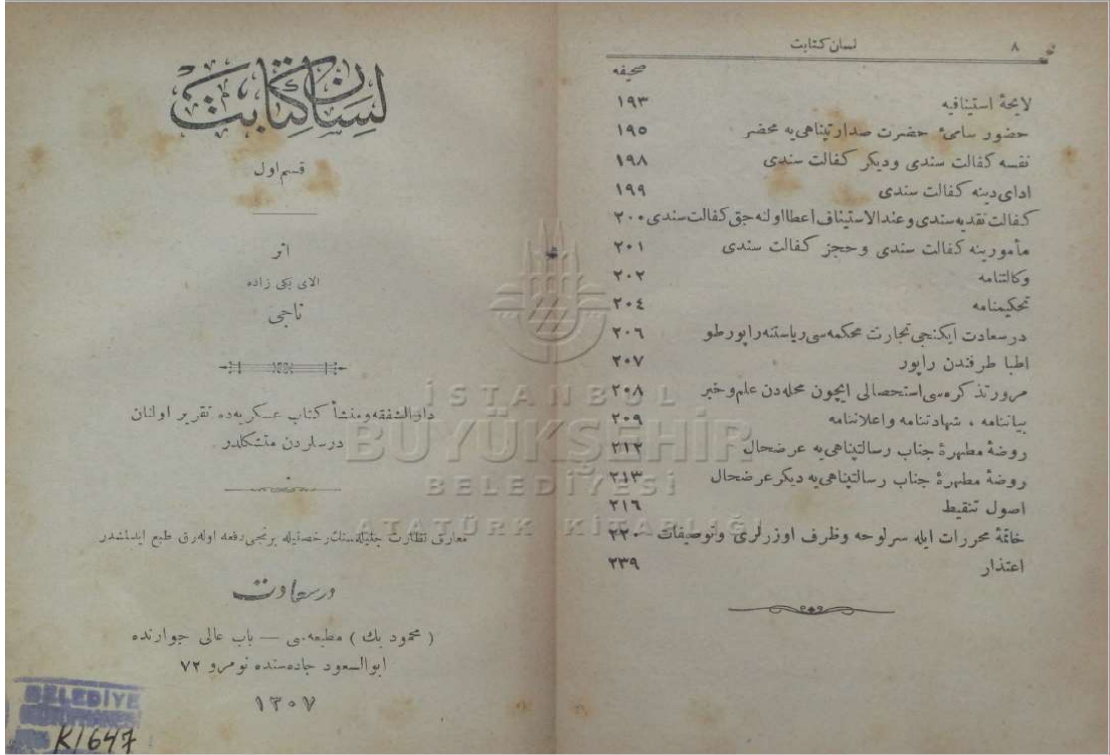 ٨
لسان كتابت
صحيفه
لايحۀ استينافيه ١٩٣
حضور سامئ حضرت صدارتپناهی‌يه محضر ١٩٥
نفسه كفالت سندی وديكر كفالت سندی ١٩٨
ادای دينه كفالت سندی ١٩٩
كفالت نقديه سندی وعندالاستيناف اعطا اولنه جق كفالت سندی ٢٠٠
مأمورينه كفالت سندی وحجز كفالت سندی ٢٠١
وكالتنامه ٢٠٢
تحكيمنامه ٢٠٤
درسعادت ايكنجی تجارت محكمه‌سی رياستنه راپورطو ٢٠٦
اطبا طرفندن راپور ٢٠٧
مرور تذكره‌سی استحصالی ايچون محله‌دن علم وخبر ٢٠٨
بياننامه ، شهادتنامه واعلاننامه ٢٠٩
روضۀ مطهرۀ جناب رسالتپناهی‌يه عرضحال ٢١٢
روضۀ مطهرۀ جناب رسالتپناهی‌يه ديكر عرضحال ٢١٣
اصول تنقيط ٢١٦
خاتمۀ محررات ايله سرلوحه وظرف اوزرلری وتوصيفات ٢٢٠
اعتذار ٢٣٩
لسان كتابت
قسم اول
اثر
الای بكی زاده
ناجی
دارالشفقه ومنشأ كتاب عسكريه‌ده تقرير اولنان
درسلردن متشكلدر
معارف نظارت جليله‌سنك رخصتيله برنجی دفعه اوله‌رق طبع ايدلمشدر
درسعادت
( محمود بك ) مطبعه‌سی — باب عالی جوارنده
ابوالسعود جاده‌سنده نومرو ٧٢
١٣٠٧
İSTANBUL
BÜYÜKŞEHİR
BELEDİYESİ
ATATÜRK KİTAPLIĞI
BELEDİYE
K/647